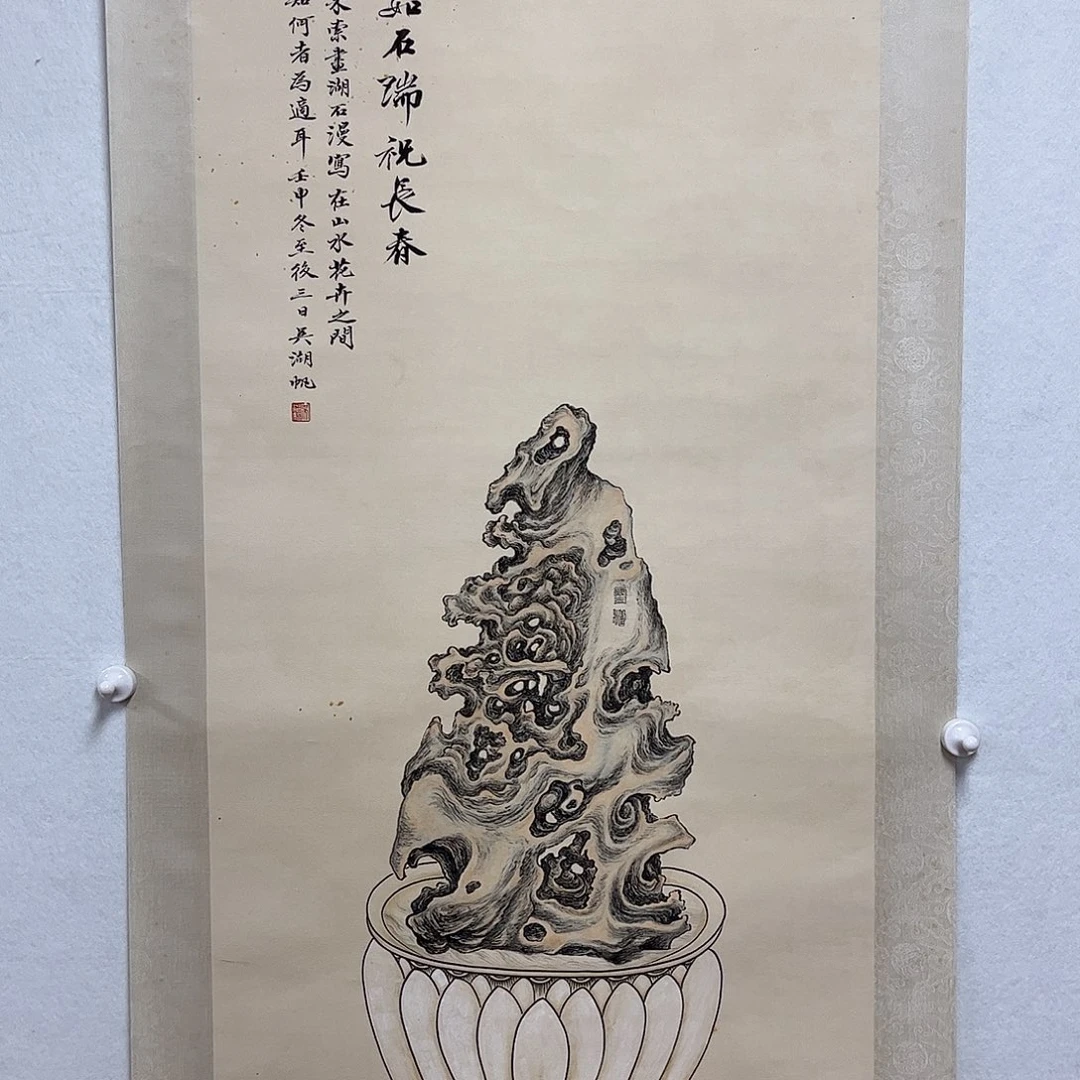 如石瑞祝長春
索畫湖石漫寫在山水花卉之間
如何者為適耳壬申冬至後三日吳湖帆